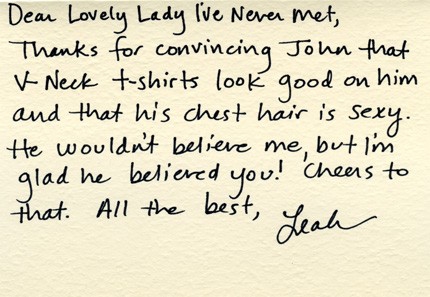 Dear Lovely Lady I've Never met,
Thanks for convincing John that
V-Neck t-shirts look good on him
and that his chest hair is sexy.
He wouldn't believe me, but I'm
glad he believed you! Cheers to
that. All the best,
Leah